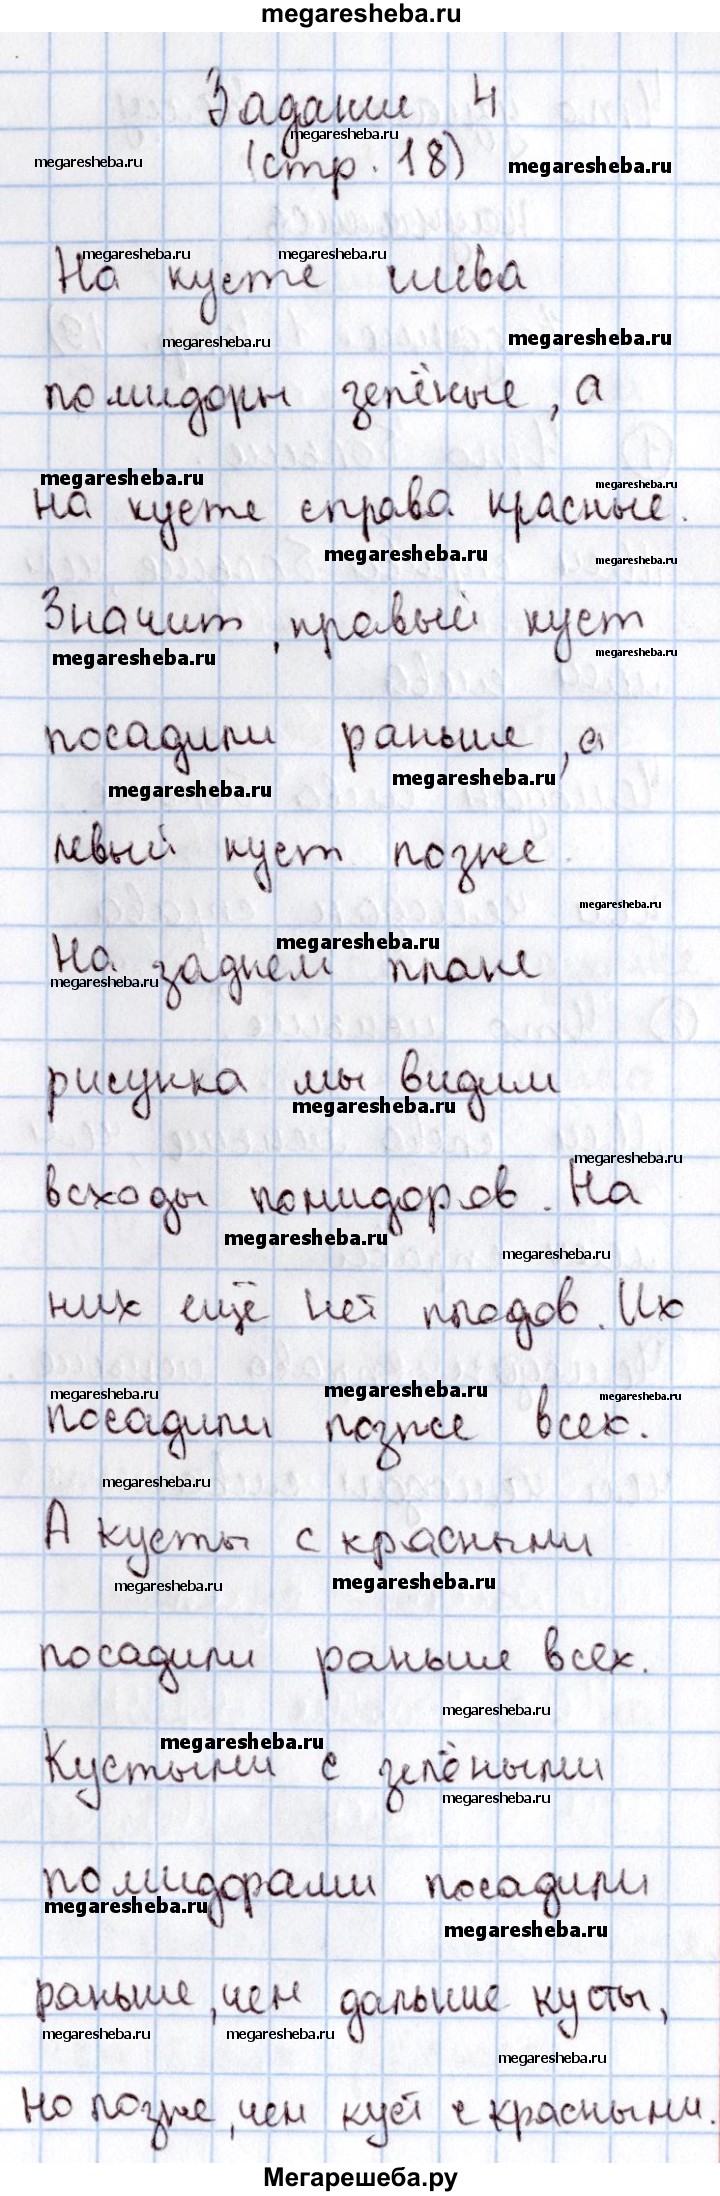 megaresheba.ru
Задание 4
megaresheba.ru
megaresheba.ru
(стр. 18)
megaresheba.ru
megaresheba.ru
megaresheba.ru
На кусте слева
megaresheba.ru
megaresheba.ru
помидоры зелёные, а
megaresheba.ru
megaresheba.ru
на кусте справа красные.
megaresheba.ru
megaresheba.ru
Значит, правый куст
megaresheba.ru
megaresheba.ru
посадили раньше, а
megaresheba.ru
megaresheba.ru
левый куст позже.
megaresheba.ru
megaresheba.ru
На заднем плане
megaresheba.ru
рисунка мы видим
megaresheba.ru
megaresheba.ru
всходы помидоров. На
megaresheba.ru
megaresheba.ru
них ещё нет плодов. Их
megaresheba.ru
megaresheba.ru
megaresheba.ru
посадили позже всех.
megaresheba.ru
А кусты с красными
megaresheba.ru
megaresheba.ru
посадили раньше всех.
megaresheba.ru
megaresheba.ru
Кустыми с зелёными
megaresheba.ru
помидорами посадили
megaresheba.ru
megaresheba.ru
раньше, чем дальние кусты,
megaresheba.ru
megaresheba.ru
megaresheba.ru
но позже, чем куст с красными.
Мегарешеба.ру